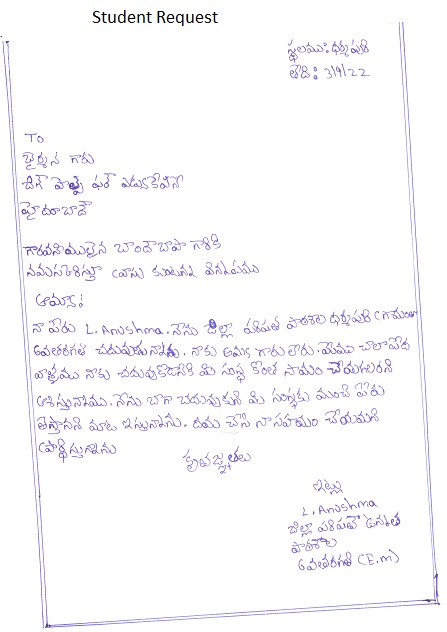 Student Request
స్థలము: ధర్మపురి
తేది: 3/9/22
To
ఛైర్మన్ గారు
హైదరాబాద్
గౌరవనీయులైన బాందేబాషా గారికి
నమస్కరిస్తూ వ్రాసుకుంటున్న విన్నపము
అయ్యా:
నా పేరు L. Anushma. నేను జిల్లా పరిషత్ పాఠశాల ధర్మపురి
తరగతి చదువుతున్నాను. నాకు అమ్మ గారు లేరు. మేము చాలా పేద
వాళ్ళము నాకు చదువుకోడానికి మీ సంస్థ కొంత సాయం చేయగలరని
ఆశిస్తున్నాము. నేను బాగా చదువుకుని మీ సంస్థకు మంచి పేరు
తెస్తానని మాట ఇస్తున్నాను. దయ చేసి నా సహయం చేయమని
ప్రార్థిస్తున్నాను
కృతజ్ఞతలు
ఇట్లు
L. Anushma
జిల్లా పరిషత్ ఉన్నత
పాఠశాల
తరగతి (E.m)